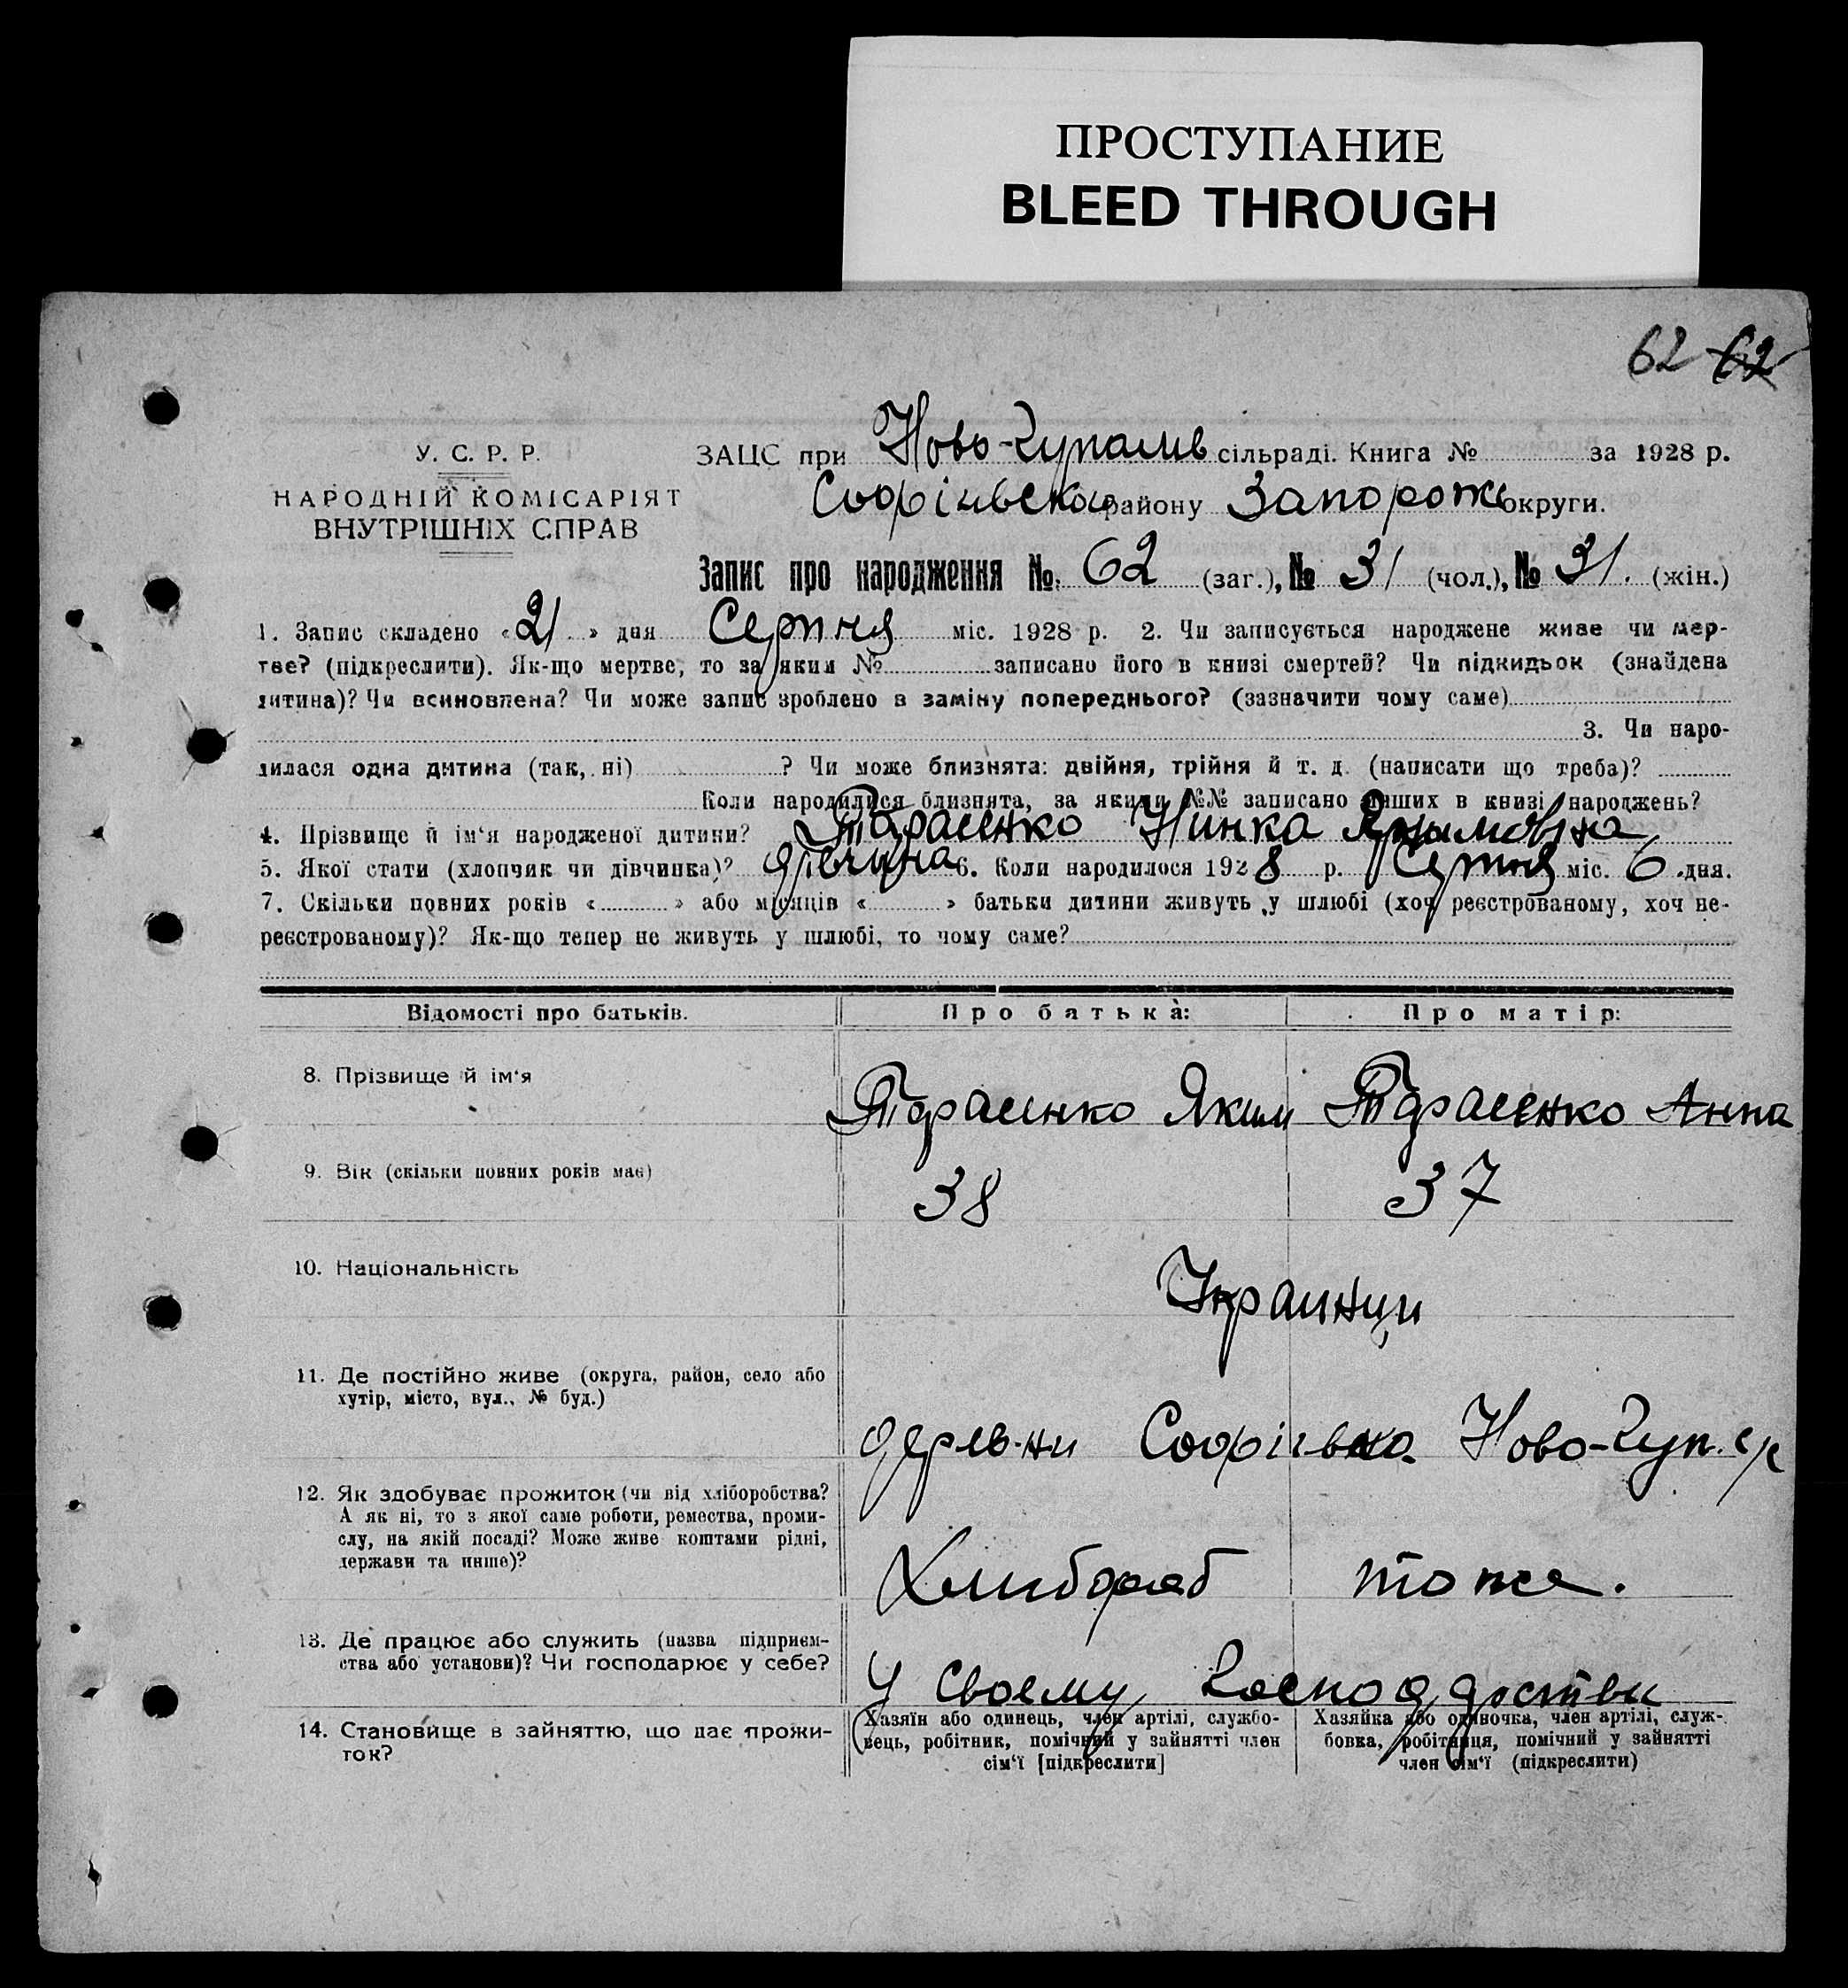 ПРОСТУПАНИЕ
BLEED THROUGH
62 62
У. С. Р. Р.
НАРОДНІЙ КОМІСАРІЯТ
ВНУТРІШНІХ СПРАВ
ЗАЦС при Ново- сільраді. Книга № за 1928 р.
району Запорожь округи.
Запис про народження №. 62 (заг.), № 31 (чол.), № 31. (жін.)
1. Запис складено «21» дня Серпня міс. 1928 р. 2. Чи записується народжене живе чи мер-
тве? (підкреслити). Як-що мертве, то за яким № записано його в книзі смертей? Чи підкидьок (знайдена
дитина)? Чи всиновлена? Чи може запис зроблено в заміну попереднього? (зазначити чому саме)
3. Чи наро-
дилася одна дитина (так, ні) ? Чи може близнята: двійня, трійня й т. д. (написати що треба)?
Коли народилися близнята, за якими №№ записано інших в книзі народжень?
4. Прізвище й ім‘я народженої дитини? Тарасенко Нинка Якимовна
5. Якої стати (хлопчик чи дівчинка)? дівчина 6. Коли народилося 1928 р. Серпня міс. 6 дня.
7. Скільки повних років « » або місяців « » батьки дитини живуть у шлюбі (хоч реєстрованому, хоч не-
реєстрованому)? Як-що тепер не живуть у шлюбі, то чому саме?
Відомості про батьків. Про батька: Про матір:
8. Прізвище й ім‘я Тарасенко Яким Тарасенко Анна
9. Вік (скільки повних років має) 38 37
10. Національність Украинци
11. Де постійно живе (округа, район, село або
хутір, місто, вул., № буд.)
Ново- с/р
12. Як здобуває прожиток (чи від хліборобства?
А як ні, то з якої саме роботи, ремества, проми-
слу, на якій посаді? Може живе коштами рідні,
держави та инше)?
Хлибораб тоже.
13. Де працює або служить (назва підприєм-
ства або установи)? Чи господарює у себе?
у своему господарстви
14. Становище в зайняттю, що дає прожи-
ток?
Хазяїн або одинець, член артілі, службо-
вець, робітник, помічний у зайнятті член
сім‘ї [підкреслити]
Хазяйка або одиночка, член артілі, служ-
бовка, робітниця, помічний у зайнятті
член сім‘ї (підкреслити)